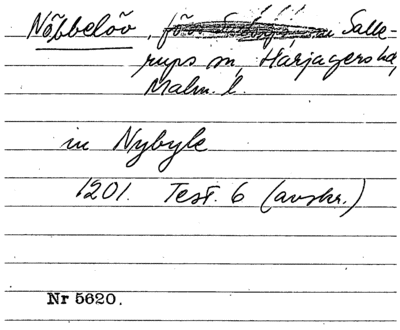 Nöbbelöv, Salle-
rups sn, Harjagers hd,
Malm. l.
in Nybyle
1201. Test. 6 (avskr.)
Nr 5620.